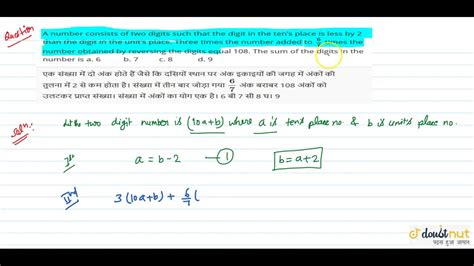 Question
A number consists of two digits such that the digit in the ten's place is less by 2
than the digit in the unit's place. Three times the number added to 6/7 times the
number obtained by reversing the digits equal 108. The sum of the digits in the
number is a. 6 b. 7 c. 8 d. 9
एक संख्या में दो अंक होते हैं जैसे कि दसियों स्थान पर अंक इकाइयों की जगह में अंकों की
तुलना में 2 से कम होता है। संख्या में तीन बार जोड़ा गया 6/7 अंक बराबर 108 अंकों को
उलटकर प्राप्त संख्या। संख्या में अंकों का योग एक है। 6 बी 7 सी 8 घ। 9
Solⁿ:
Let the two digit number is (10a+b) where a is tens place no. & b is unit's place no.
Ist
a = b-2 — ①
b = a+2
IInd
3(10a+b) + 6/7 (
doubtnut